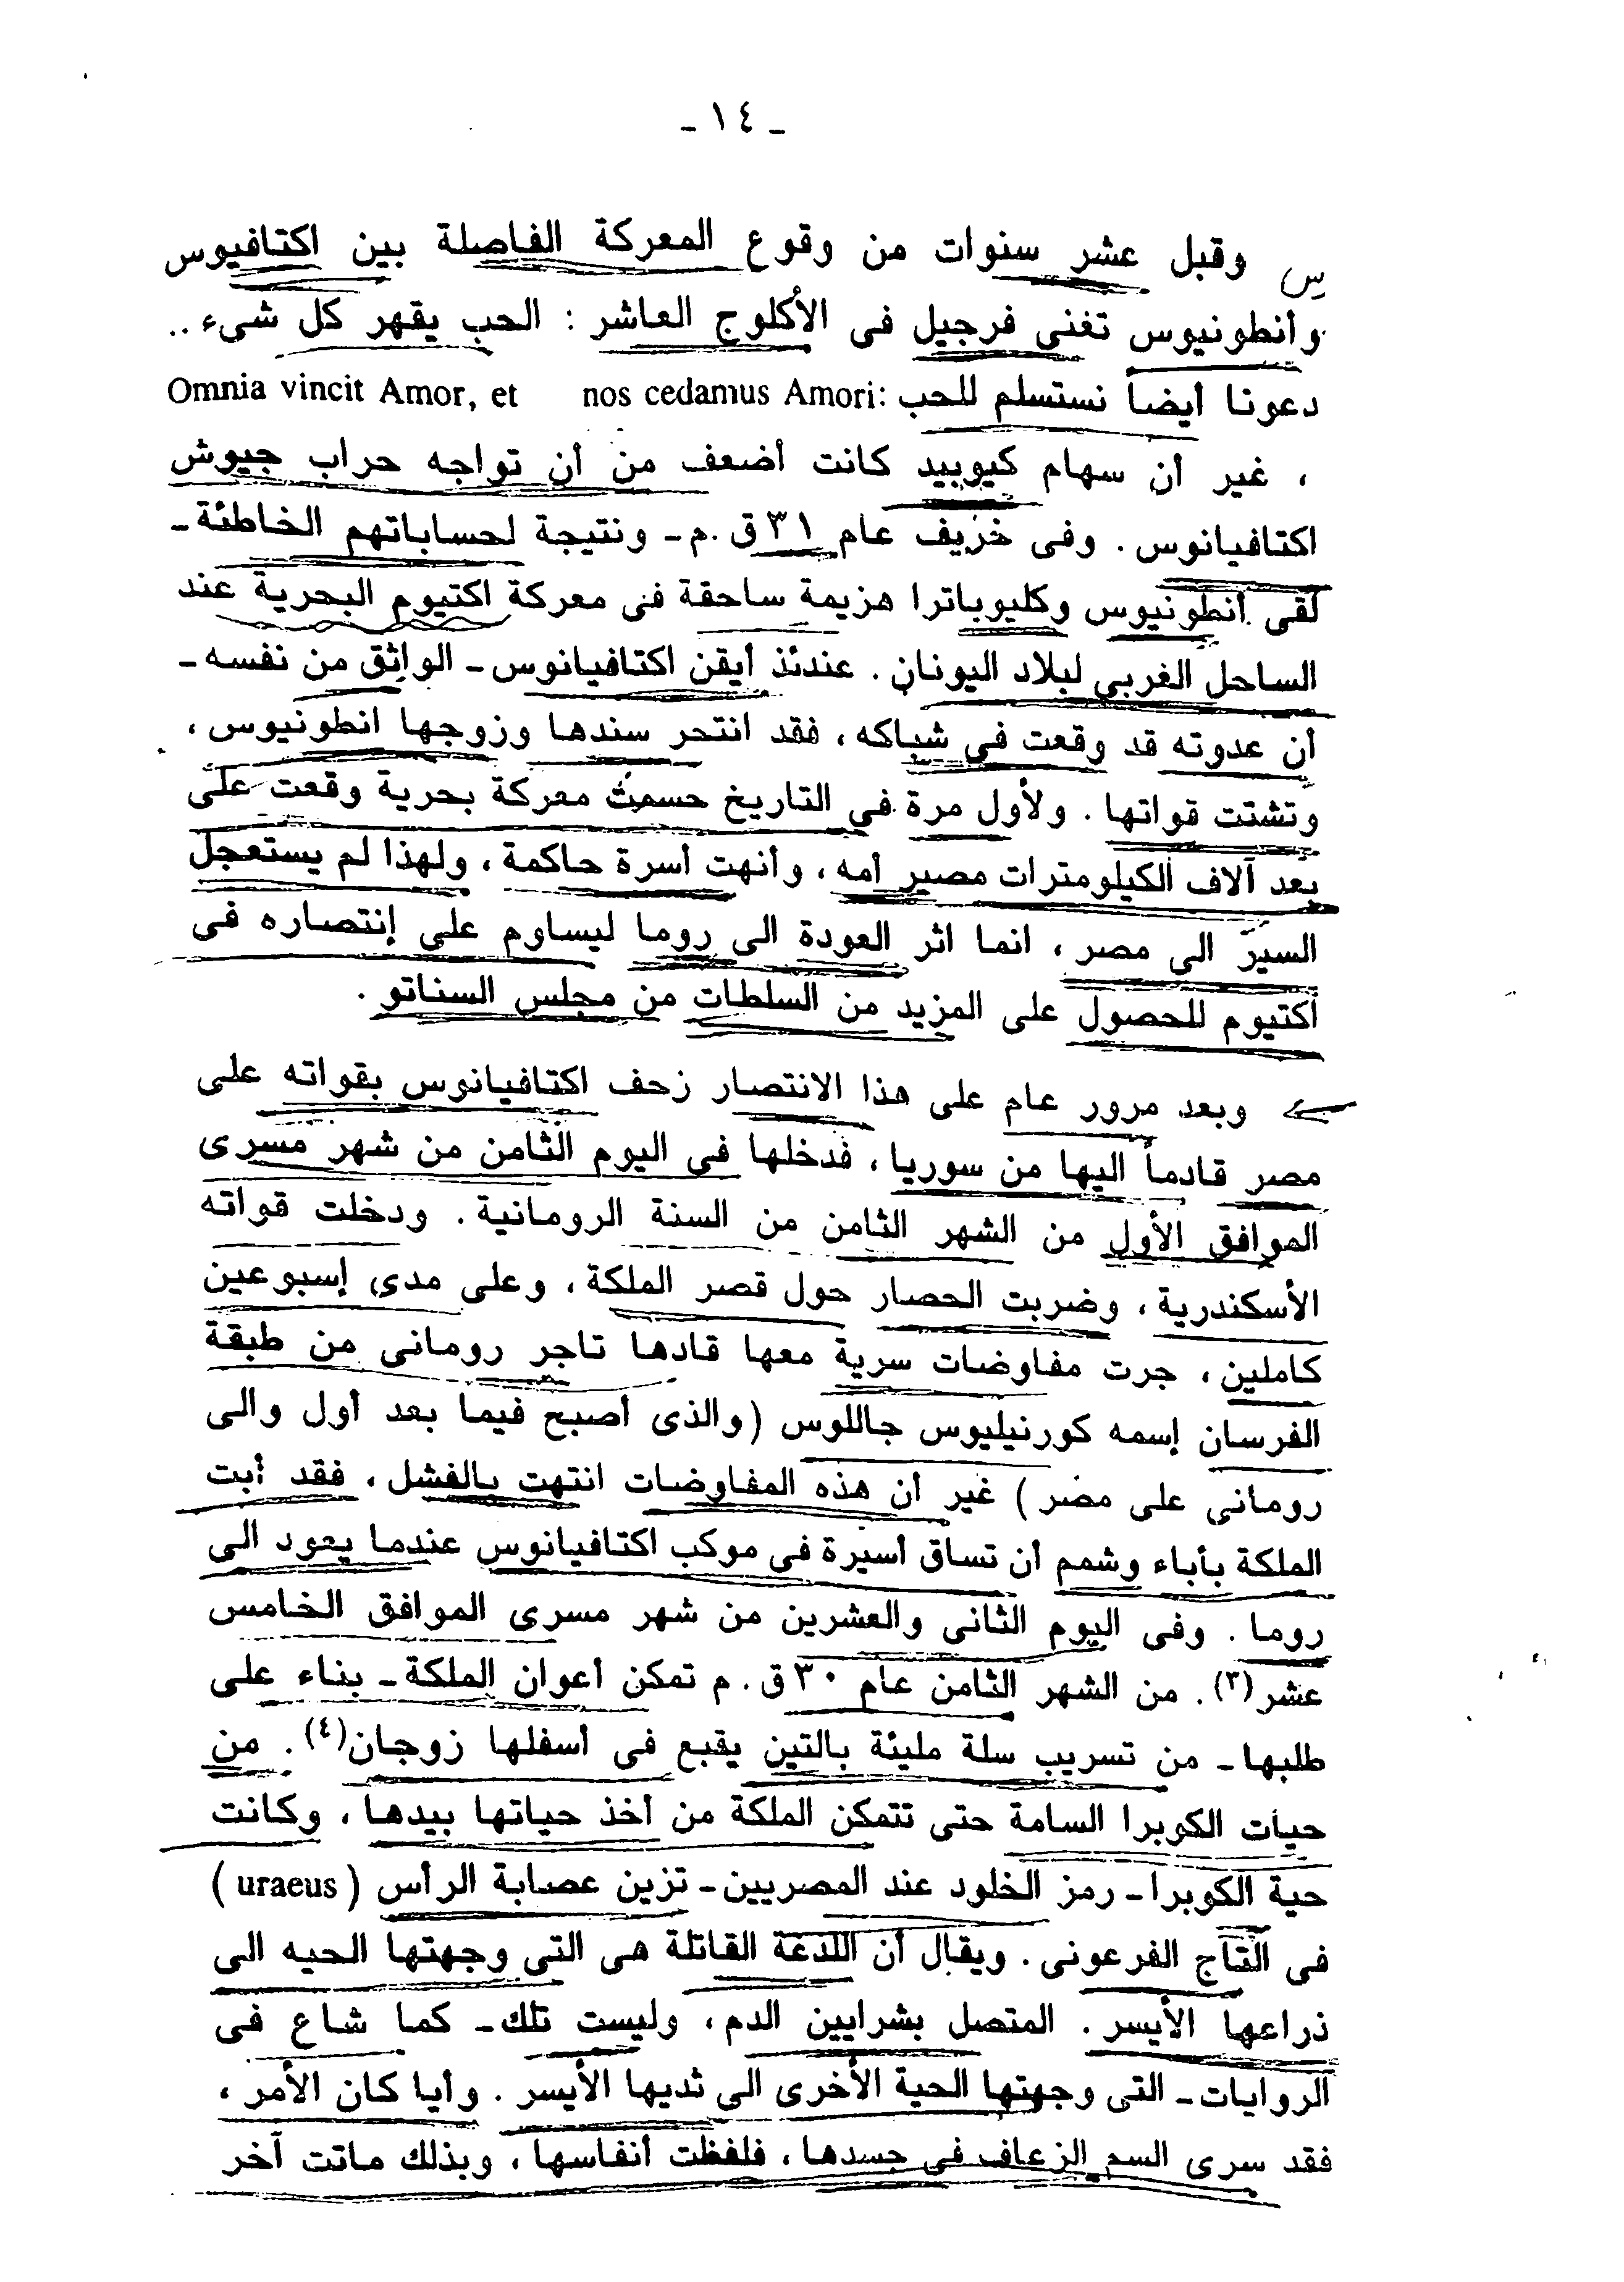 ـ ١٤ ـ
س وقبل عشر سنوات من وقوع المعركة الفاصلة بين اكتافيوس
وأنطونيوس تغنى فرجيل فى الأكلوج العاشر : الحب يقهر كل شىء ..
دعونا أيضاً نستسلم للحب :Omnia vincit Amor, et nos cedamus Amori
، غير أن سهام كيوبيد كانت أضعف من أن تواجه حراب جيوش
اكتافيانوس . وفى خريف عام ٣١ ق .م ـ ونتيجة لحساباتهم الخاطئة ـ
لقى أنطونيوس وكليوباترا هزيمة ساحقة فى معركة اكتيوم البحرية عند
الساحل الغربي لبلاد اليونان . عندئذ أيقن اكتافيانوس ـ الواثق من نفسه ـ
أن عدوته قد وقعت في شباكه ، فقد انتحر سندها وزوجها انطونيوس ،
وتشتت قواتها . ولأول مرة في التاريخ حسمت معركة بحرية وقعت على
بعد آلاف الكيلومترات مصير أمه ، وأنهت أسرة حاكمة ، ولهذا لم يستعجل
السير الى مصر ، انما اثر العودة الى روما ليساوم على إنتصاره فى
أكتيوم للحصول على المزيد من السلطات من مجلس السناتو .
وبعد مرور عام على هذا الانتصار زحف اكتافيانوس بقواته على
مصر قادماً اليها من سوريا ، فدخلها فى اليوم الثامن من شهر مسرى
الموافق الأول من الشهر الثامن من السنة الرومانية . ودخلت قواته
الأسكندرية ، وضربت الحصار حول قصر الملكة ، وعلى مدى إسبوعين
كاملين ، جرت مفاوضات سرية معها قادها تاجر رومانى من طبقة
الفرسان إسمه كورنيليوس جاللوس (والذى أصبح فيما بعد أول والى
رومانى على مصر ) غير أن هذه المفاوضات انتهت بالفشل ، فقد أبت
الملكة بأباء وشمم أن تساق أسيرة فى موكب اكتافيانوس عندما يعود الى
روما . وفى اليوم الثانى والعشرين من شهر مسرى الموافق الخامس
عشر(٣) . من الشهر الثامن عام ٣٠ ق . م تمكن أعوان الملكة ـ بناء على
طلبها ـ من تسريب سلة مليئة بالتين يقبع فى أسفلها زوجان(٤) . من
حيات الكوبرا السامة حتى تتمكن الملكة من أخذ حياتها بيدها ، وكانت
حية الكوبرا ـ رمز الخلود عند المصريين ـ تزين عصابة الرأس ( uraeus )
فى التاج الفرعونى . ويقال أن اللدغة القاتلة هى التى وجهتها الحيه الى
ذراعها الأيسر . المتصل بشرايين الدم ، وليست تلك ـ كما شاع فى
الروايات ـ التى وجهتها الحية الأخرى الى ثديها الأيسر . وأيا كان الأمر ،
فقد سرى السم الزعاف فى جسدها ، فلفظت أنفاسها ، وبذلك ماتت آخر